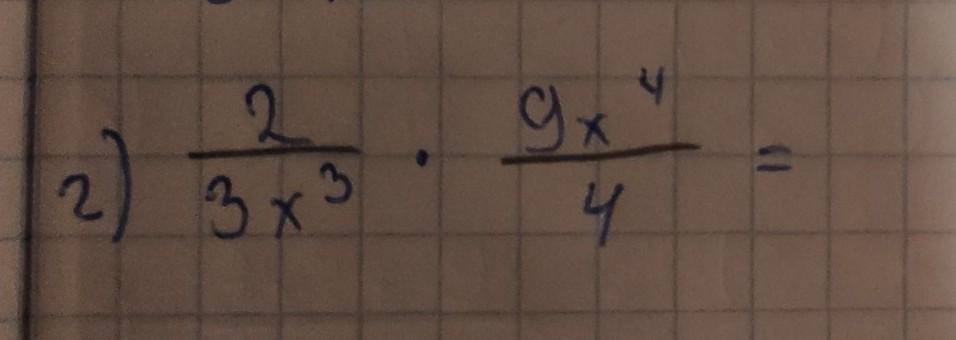 2) \frac{2}{3x^3} \cdot \frac{9x^4}{4} =